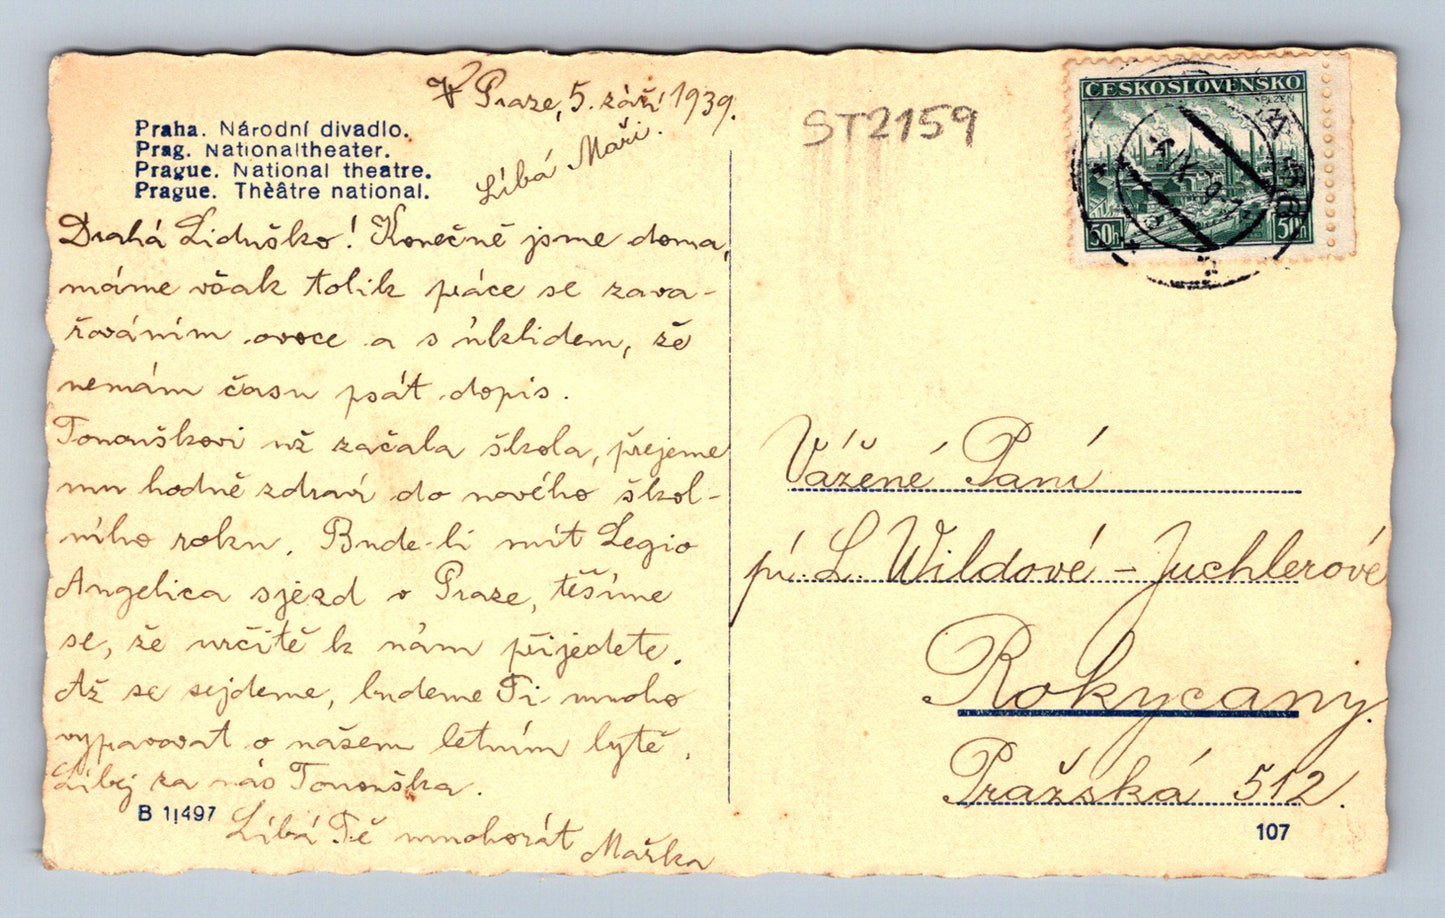 V Praze, 5. září 1939.
Líbá Maři.
Praha. Národní divadlo.
Prag. Nationaltheater.
Prague. National theatre.
Prague. Thèâtre national.
Drahá Liduško! Konečně jsme doma,
máme však tolik práce se zava-
řováním ovoce a s úklidem, že
nemám času psát dopis.
Tonouškovi už začala škola, přejeme
mu hodně zdraví do nového škol-
ního roku. Bude-li mít Legio
Angelica sjezd v Praze, těšíme
se, že určitě k nám přijedete.
Až se sejdeme, budeme Ti mnoho
vypravovat o našem letním bytě.
Líbej za nás Tonouška.
Líbá Tě mnohorát Mařka
B 11497
ST2159
ČESKOSLOVENSKO
PLZEŇ
50h
50h
Vážené Paní
pí. L. Wildové - Juchlerové
Rokycany.
Pražská 512.
107